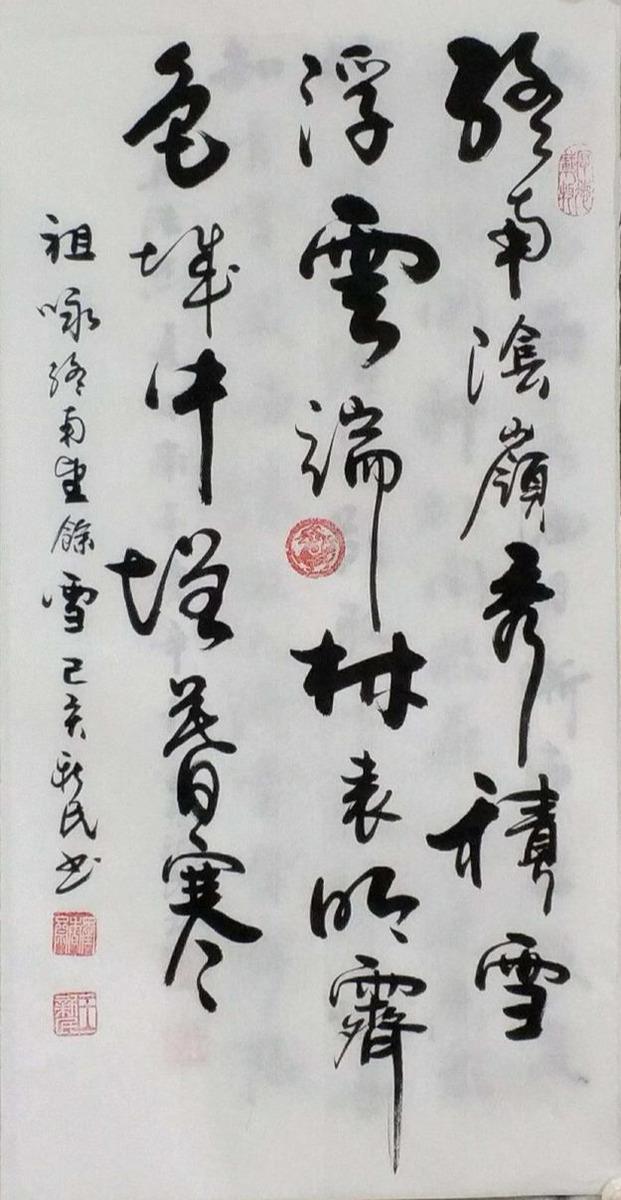 終南陰嶺秀積雪
浮雲端林表明霽
色城中增暮寒
祖咏終南望餘雪己亥新民书